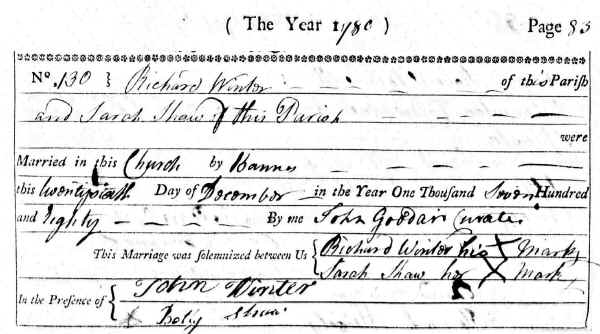 ( The Year 1780 ) Page 83
No. 130 } Richard Winter of this Parish
and Sarah Shaw of this Parish
were
Married in this Church by Banns
this twenty sixth Day of December in the Year One Thousand Seven Hundred
and Eighty By me John Goddard Curate
This Marriage was solemnized between Us { Richard Winter his X Mark
Sarah Shaw her X Mark
In the Presence of { John Winter
Shaw